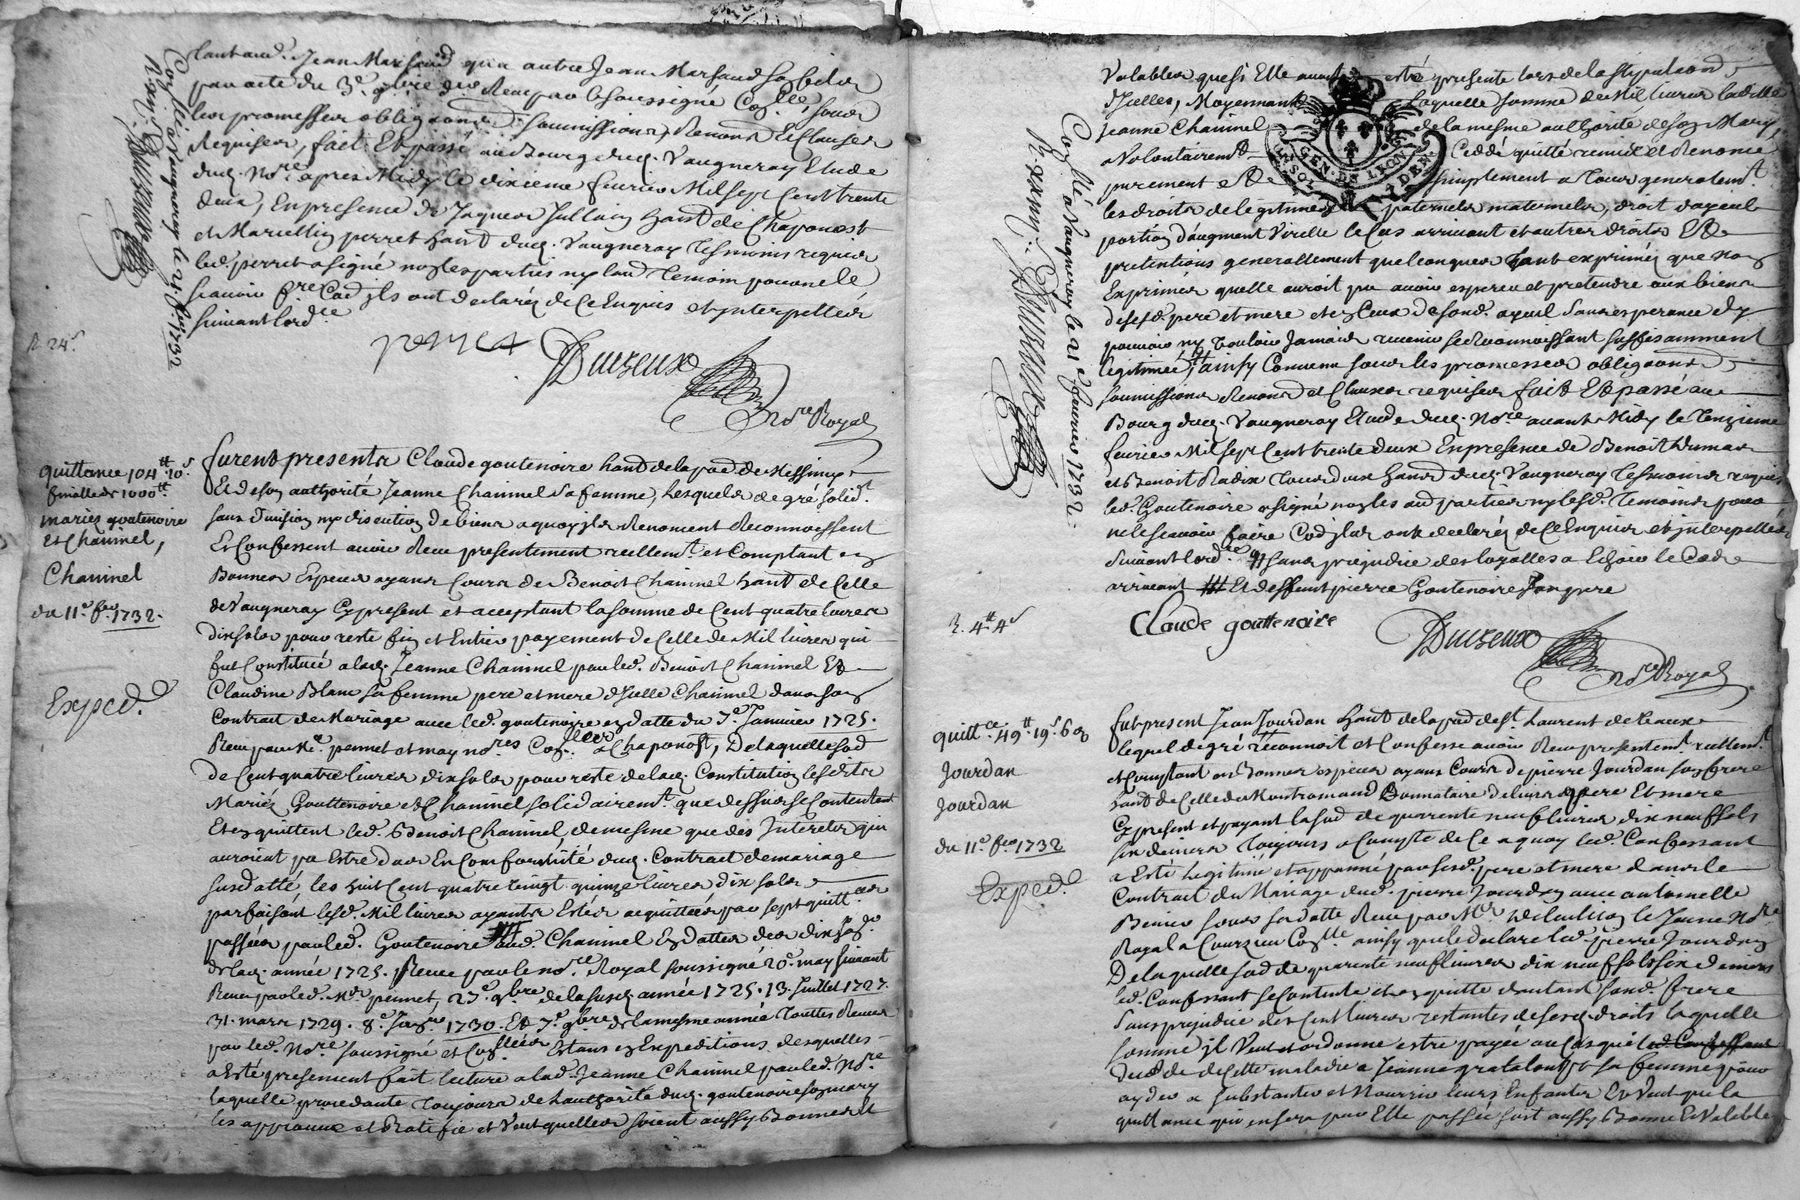 par acte du 3e
leurs promesses obligeance soumissions, Renonc. Et Clauses
Requises, fait Et passé au Bourg dud. Vaugneray Etude
dud. Nore apres Midy le dixieme feuvrier Mil sept Cent trente
deux, En presence de Jaques Jullain habt de Chaponost
et Marcellin perret habt dud. Vaugneray Tesmoins requis
led. perret a signé non les parties ny laud. Temoin pour ne le
scauoir fre Cod. Ils ont declaré de Ce Enquis et Interpellés
suiuant lord.ce
Cosllé a Vaugneray le 21e feu 1732
R 24s
perret
Nore Royal
quittance 104tt 10s
finalle de 1000tt
mariez goutenoire
et Chaninel,
Chaninel
du 11e feu 1732.
Exped.e
furent presents Claude goutenoire habt de la pad de Messimy
Et de son authorité Jeanne Chaninel sa femme, Lesquels de gré solid.t
sans diuision ny discution de biens a quoy Ils Renoncent Reconnoissent
Et Confessent auoir Receu presentement reellemt et Comptant en
Bonnes Especes ayans Cours de Benoit Chaninel habt de Celle
de Vaugneray Cy present et acceptant la somme de Cent quatre liures
dix sols pour reste fin et Entier payement de Celle de Mil liures qui
fut Constituée a lad. Jeanne Chaninel par led. Benoit Chaninel Et
Claudine Blanc sa femme pere et mere d'Icelle Chaninel dans son
Contract de Mariage auec led. goutenoire en datte du 7e Januier 1725.
Receu par Me permet et moy nores a Chaponost, De laquelle sod
de Cent quatre liures dix sols pour reste de lad. Constitution lesdits
Mariez Gouttenoire et Chaninel solidairemt que dessus se Contentent
Et en quittent led. Benoit Chaninel de mesme que des Interets qui
auroient pu Estre dus En Conformité dud. Contract de mariage
susdatté, les huit Cent quatre vingt quinze liures dix sols
parfaisant lesd. Mil liures ayants Estés acquittées par sept quitt.ces
passées par led. Goutenoire aud. Chaninel En dattes des dix
de lad. année 1725. Receue par le nore Royal soussigné 20e may suiuant
Receu par led. Me permet, 27e 9bre de la susd. année 1725. 13. Juillet 1727.
31. mars 1729. 8e 1730. Et 7e 9bre de la mesme année Touttes Receues
par led. Nore soussigné et Estans en Expeditions desquelles
a Esté presentement fait lecture a lad. Jeanne Chaninel par led. Nore
laquelle procedante Toujours de l'authorité dud. goutenoire son mary
les approuue et Ratifie et Veut quelles soient aussy Bonnes et
Valables que si Elle auoit esté presente lors de la stipulation
d'Icelles, Moyennant laquelle somme de Mil liures ladite
Jeanne Chaninel de la mesme authorité de son Mary
a Volontairemt Ceddé quitté remis et Renoncé
purement et simplement a Tous generalemt
les droits de legitime paternels maternels, droit d'ayeul
portion d'augment Virille le Cas arriuant et autres droits Et
pretentions generallement quelconques tant exprimés que non
Exprimés quelle auroit pu auoir esperer et pretendre aux biens
de sesd. pere et mere et en Ceux de sond. ayeul sans esperance d'y
pouuoir ny Vouloir Jamais reuenir se reconnoissant suffisamment
legitimée, ainsy Conuenu sous les promesses obligeance
soumissions Renonc. et Clauses requises fait Et passé au
Bourg dud. Vaugneray Etude dud. Nore auant Midy le Onzieme
feurier Mil sept Cent trente deux En presence de Benoit
et Benoit habts dud. Vaugneray Tesmoins requis
led. Goutenoire a signé non les aud parties ny lesd. Temoins pour
ne le scauoir faire Cod. Ils ont declaré de Ce Enquis et Interpellés
Suiuant lord.ce sans prejudice des a Echoir le Cas
arriuant Et de deffunt pierre Goutenoire son pere
Cosllé a Vaugneray le 21e feurier 1732.
R. 4tt 4s
Claude gouttenoire
Nore Royal
GEN. DE LYON
DEN.
quitt.ce 49tt 19s 6d
Jourdan
Jourdan
du 11e feu 1732
Exped.e
fut present Jean Jourdan habt de la pad de st Laurent de Vaux
lequel de gré reconnoit et Confesse auoir Receu presentemt reellemt
et Comptant en Bonnes especes ayans Cours de pierre Jourdan son frere
habt de Celle de Montromand Donnataire de leurs pere Et mere
Cy present et payant la sod de quarente neuf liures dix neuf sols
six deniers Toujours a Compte de Ce a quoy led. Confessant
a Esté legitimé et appanné par sesd. pere et mere dans le
Contract de Mariage dud. pierre Jourdan auec
Receu par Me le Jeune Nore
Royal a Courzieu ainsy que le declare led. pierre Jourdan
De laquelle sod de quarente neuf liures dix neuf sols six deniers
led. Confessant se Contente et en quitte d'autant sond. frere
Sans prejudice des Cent liures restantes de sesd. droits laquelle
somme il Veut et ordonne estre payée au Cas que led. Confessant
decede de Cette maladie a Jeanne sa femme pour
ayder a substanter et Nourrir leurs Enfants Et Veut que la
quittance qui en sera par Elle passée soit aussy Bonne Et Valable